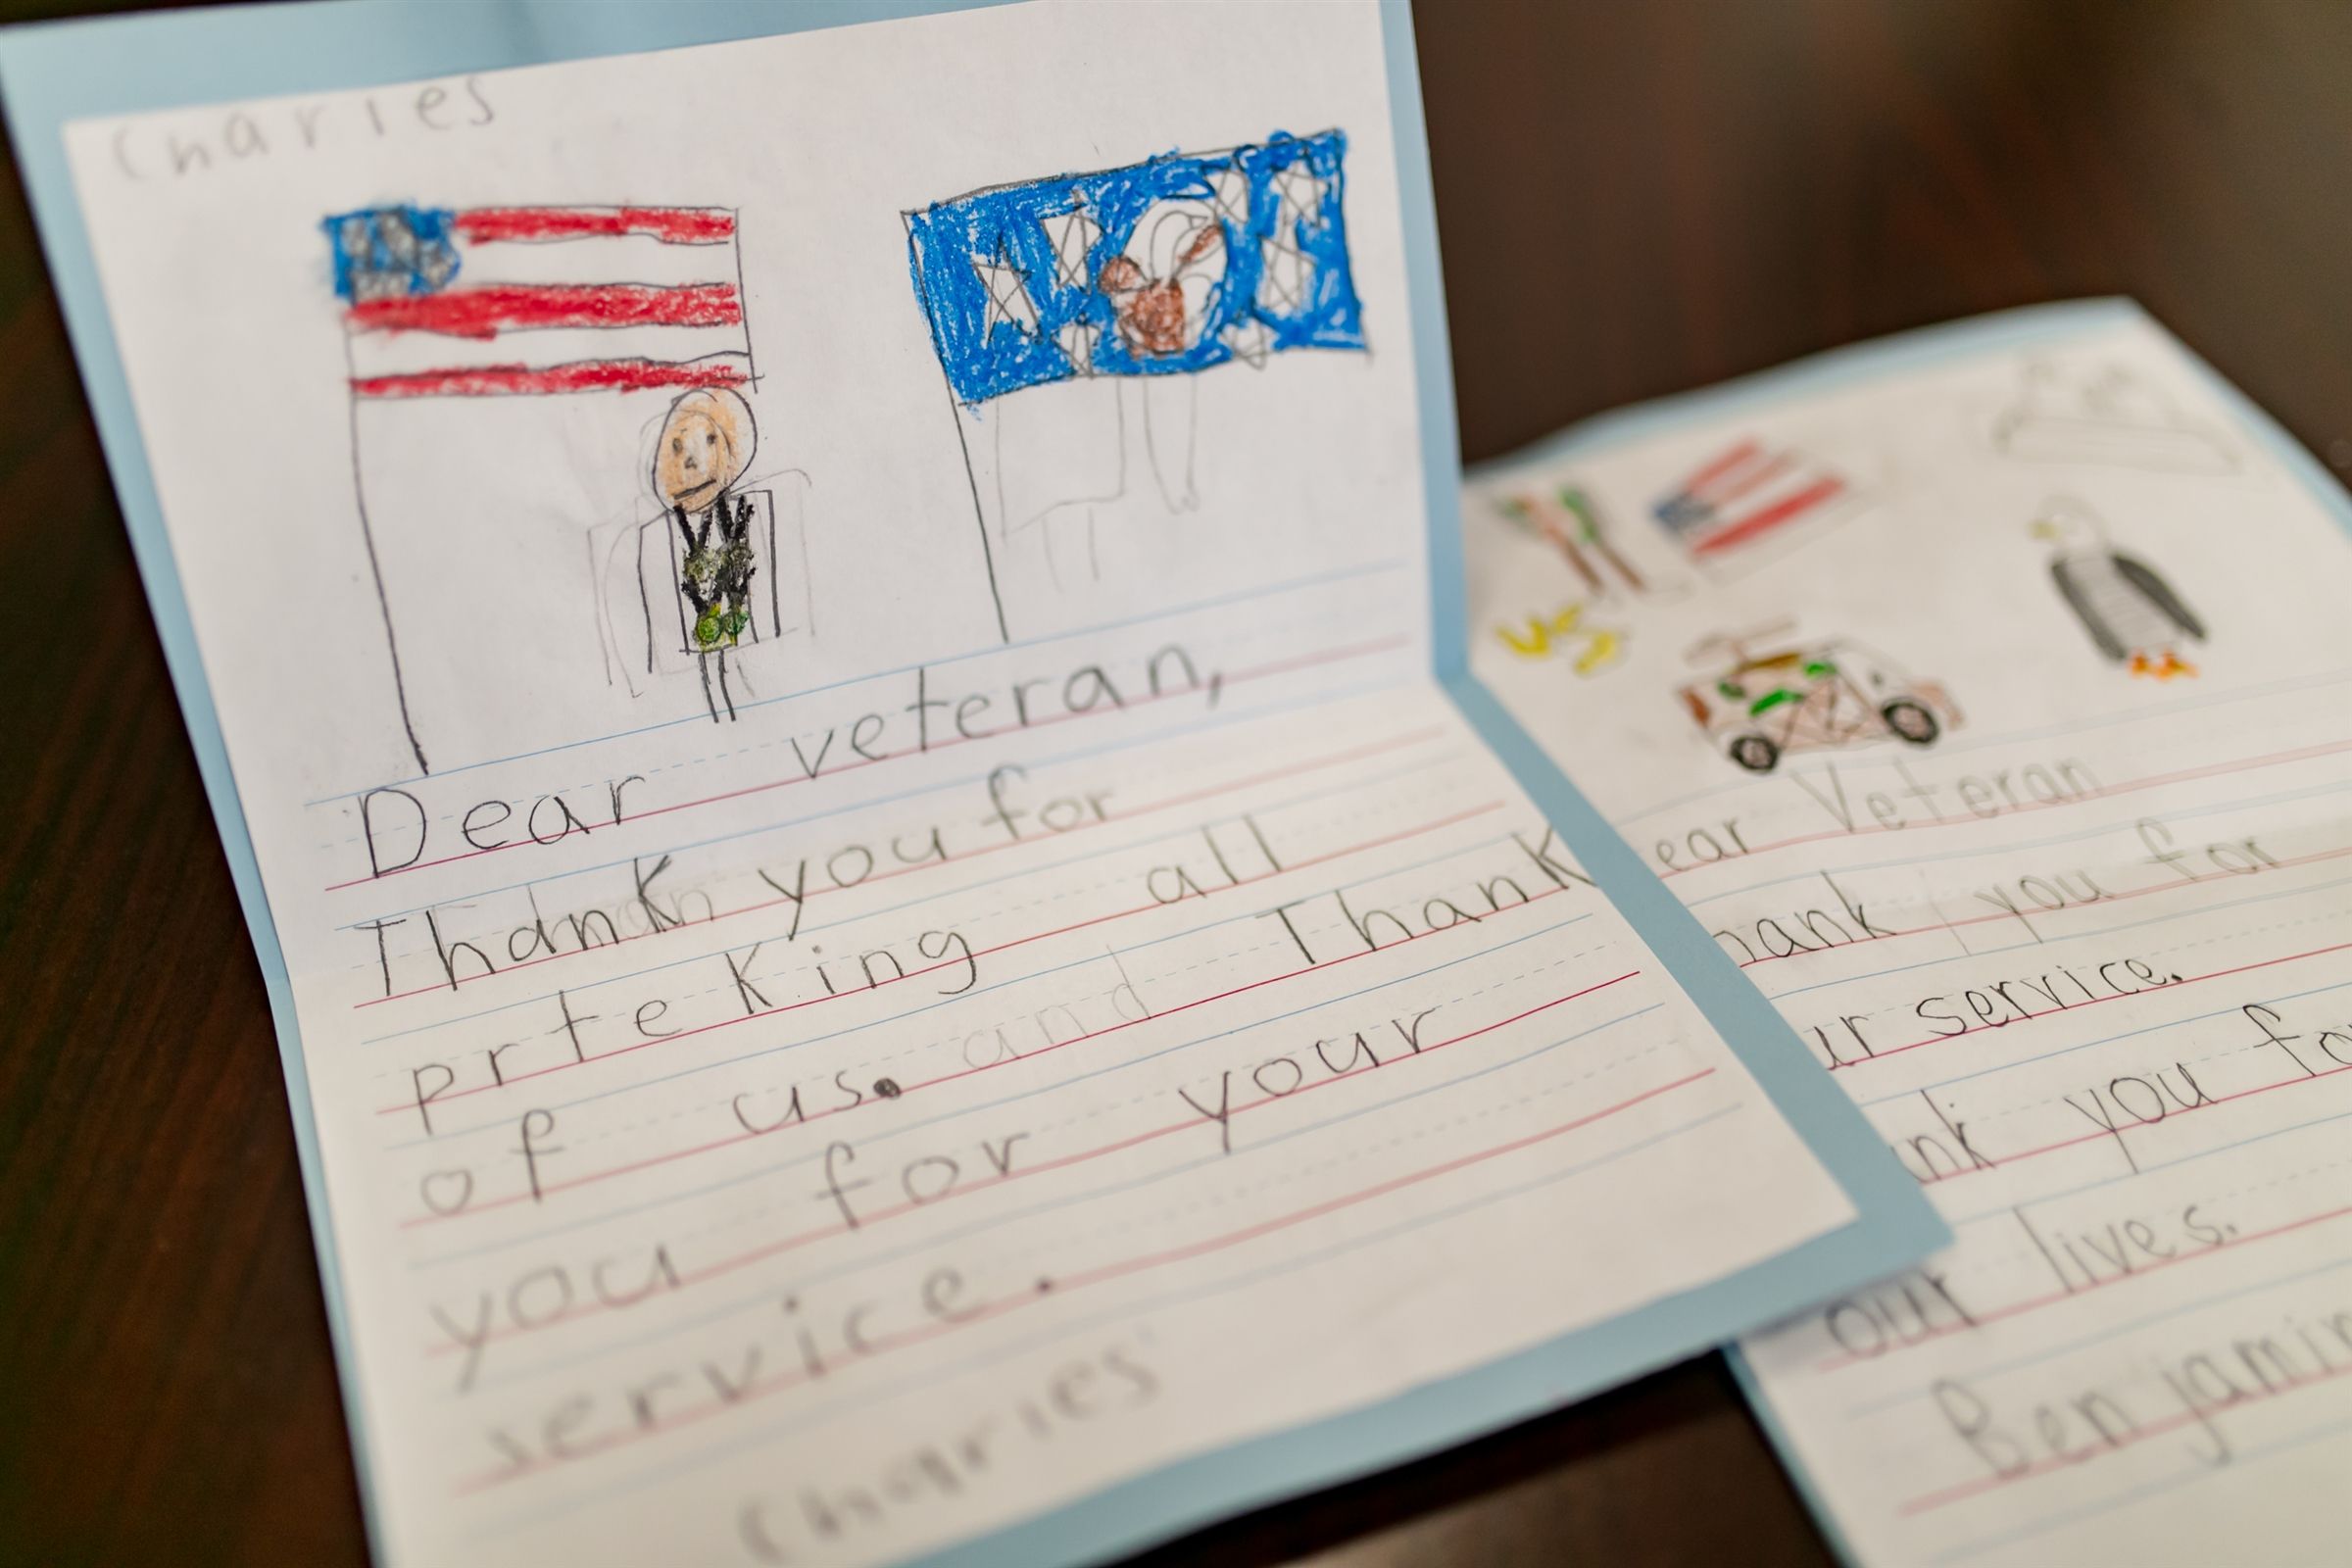 Charles
Dear veteran,
Thank you for
prteKing all
of us. and Thank
you for your
service.
Charles
VS
ear Veteran
hank you for
ur service.
nk you fo
our lives.
Benjamin